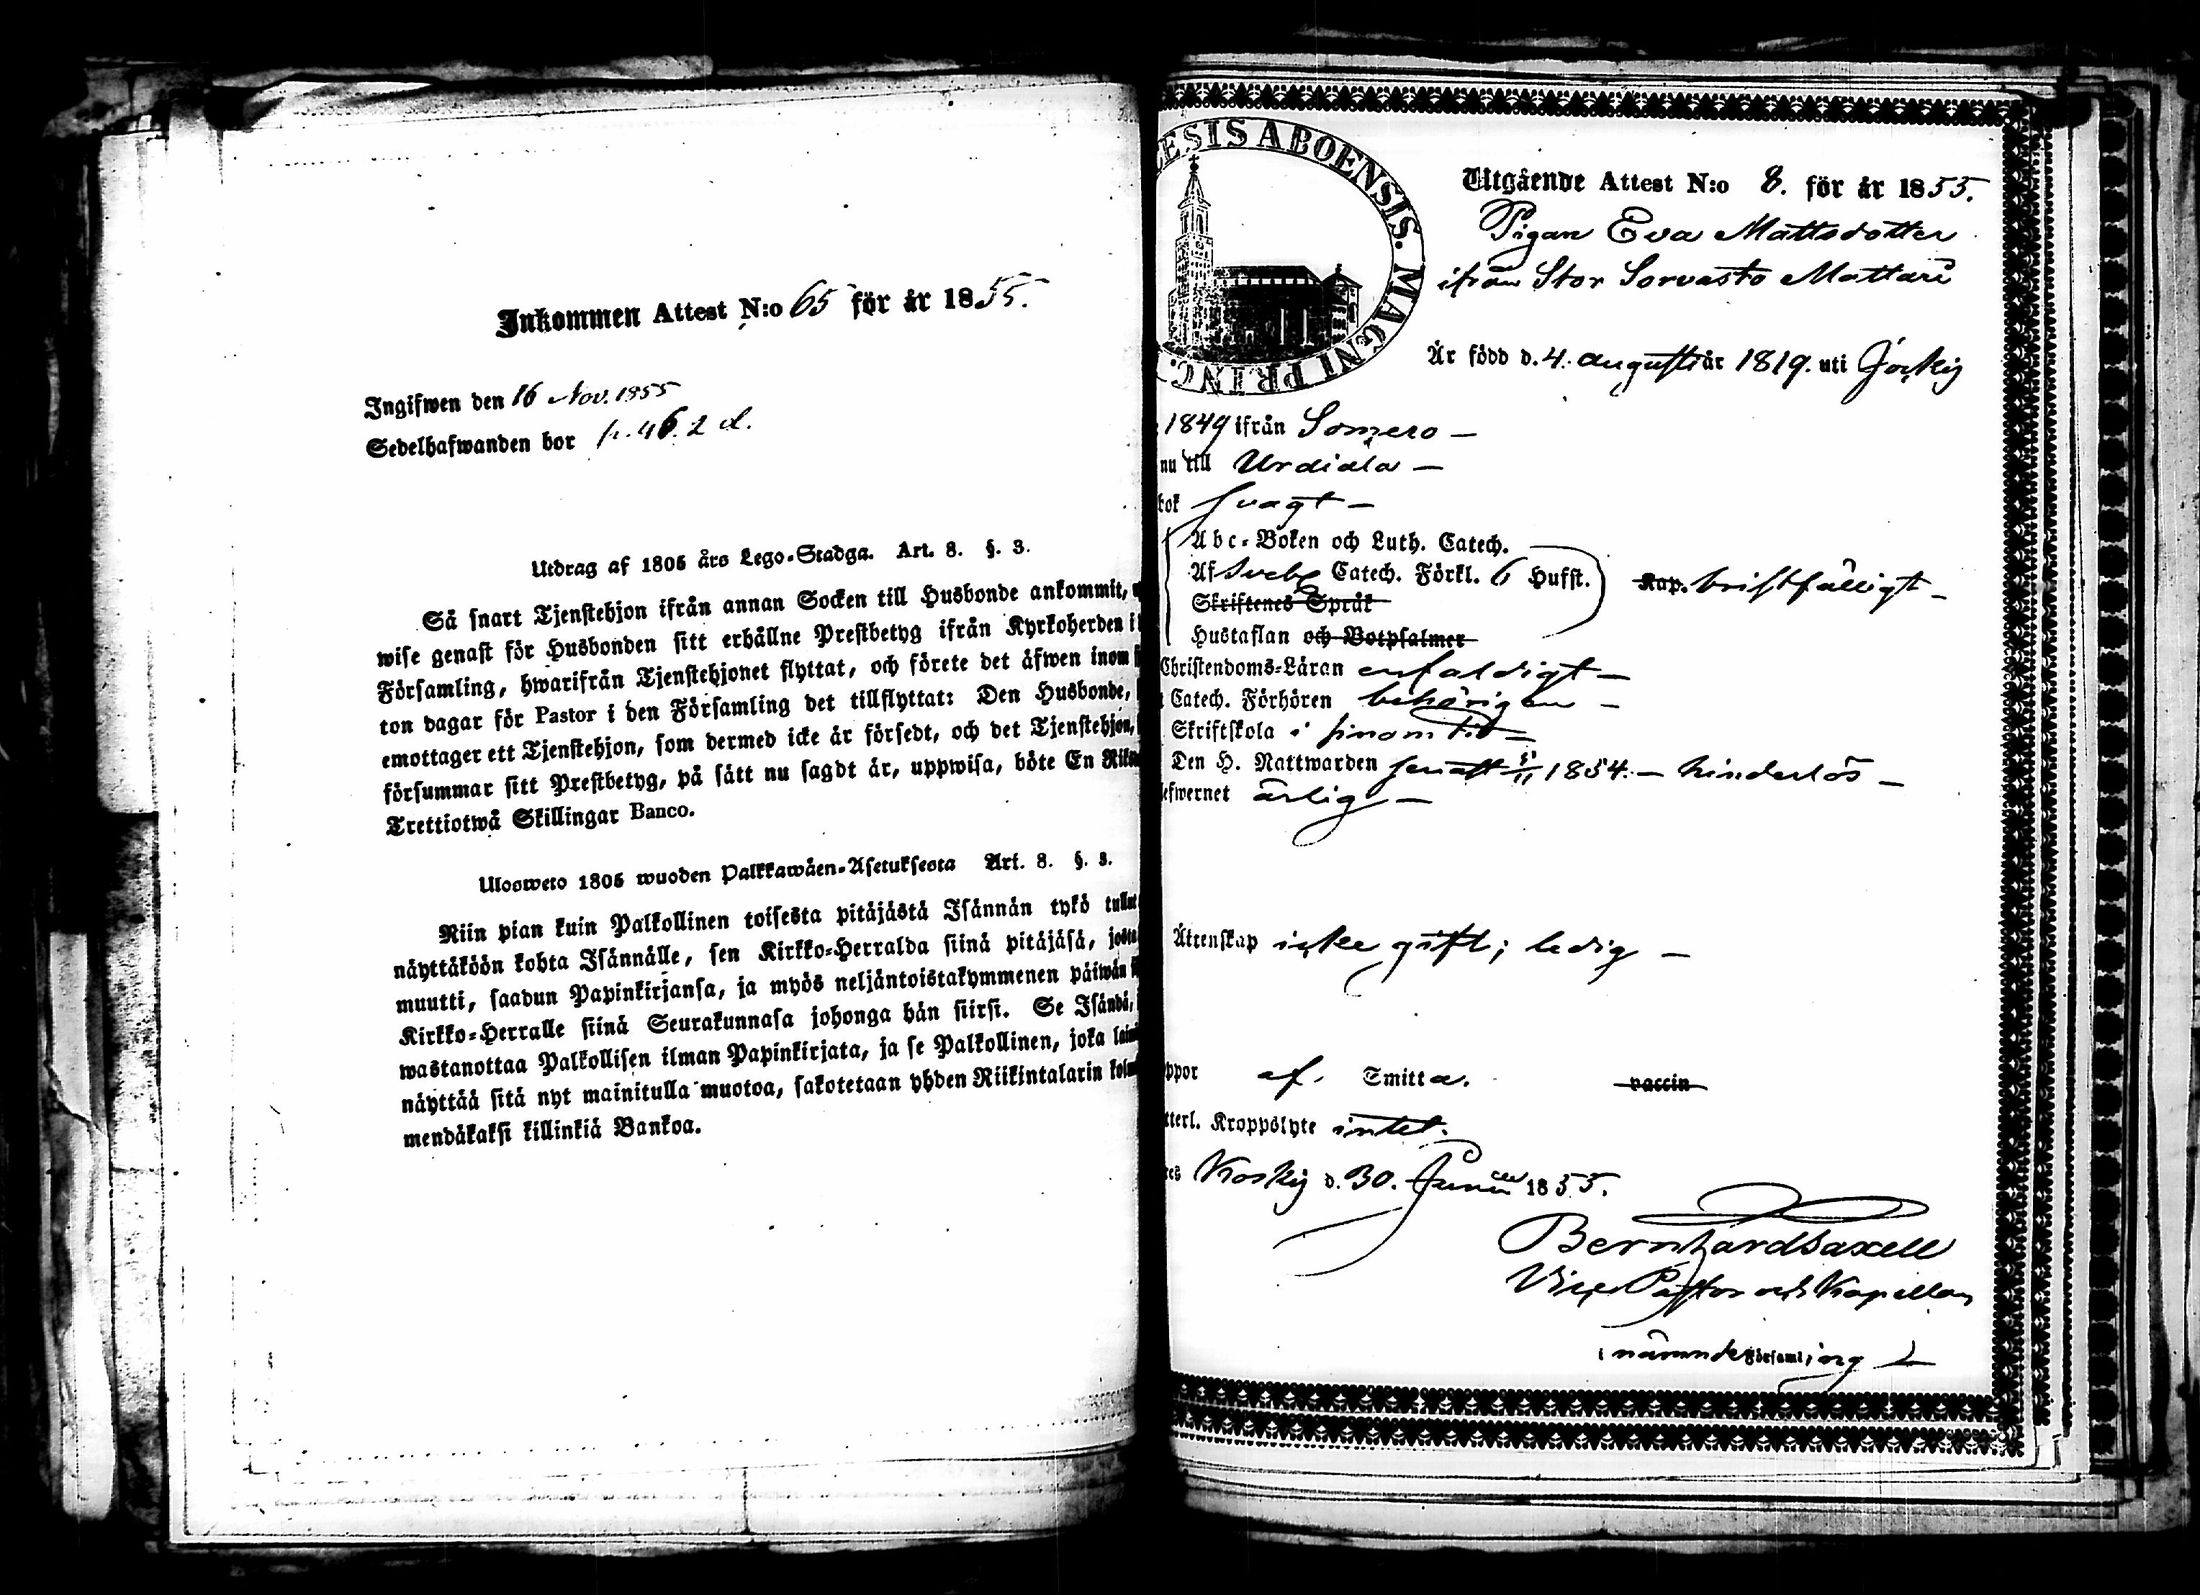 Inkommen Attest N:o 65 för år 1855.
Ingifwen den 16 Nov. 1855
Sedelhafwanden bor p. 46. 2 d.
Utdrag af 1805 års Lego-Stadga. Art. 8. §. 3.
Så snart Tjenstehjon ifrån annan Socken till Husbonde ankommit,
wise genast för Husbonden sitt erhållne Prestbetyg ifrån Kyrkoherden i
Församling, hwarifrån Tjenstehjonet flyttat, och förete det äfwen inom
ton dagar för Pastor i den Församling det tillflyttat: Den Husbonde,
emottager ett Tjenstehjon, som dermed icke är försedt, och det Tjenstehjon,
försummar sitt Prestbetyg, på sätt nu sagdt är, uppwisa, böte En
Trettiotwå Skillingar Banco.
Ulosweto 1805 wuoden Palkkawäen-Asetuksesta Art. 8. §. 3.
Niin pian kuin Palkollinen toisesta pitäjästä Isännän tykö
näyttäköön kohta Isännälle, sen Kirkko-Herralda siinä pitäjäsä,
muutti, saadun Papinkirjansa, ja myös neljäntoistakymmenen päiwän
Kirkko-Herralle siinä Seurakunnasa johonga hän siirsi. Se Isändä,
wastanottaa Palkollisen ilman Papinkirjata, ja se Palkollinen, joka
näyttää sitä nyt mainitulla muotoa, sakotetaan yhden Riikintalarin
mendäkaksi killinkiä Bankoa.
ESIS ABOENSIS. MAGNI PRINC.
Utgående Attest N:o 8. för år 1855.
Pigan Eva Mattsdotter
ifrån Stor Sorvasto Mattari
Är född d. 4. augusti år 1819. uti
1849 ifrån Somero –
nu till Urdiala –
bok svagt –
Abc-Boken och Luth. Catech.
Af Sveb. Catech. Förkl. 6 Hufst. Kap. bristfälligt –
Skriftenes Språk
Hustaflan och Botpsalmer
Christendoms-Läran enfaldigt –
Catech. Förhören behörigen –
Skriftskola i sinom tid –
Den H. Nattwarden senast 5/11 1854. – hinderlös –
efwernet ärlig –
Äktenskap icke gift; ledig –
ppor af. Smitta. vaccin
tterl. Kroppslyte intet.
Koskis d. 30. Junii 1855.
Bernhard Saxell
Vice Pastor och Kapellan
i nämnde Församling